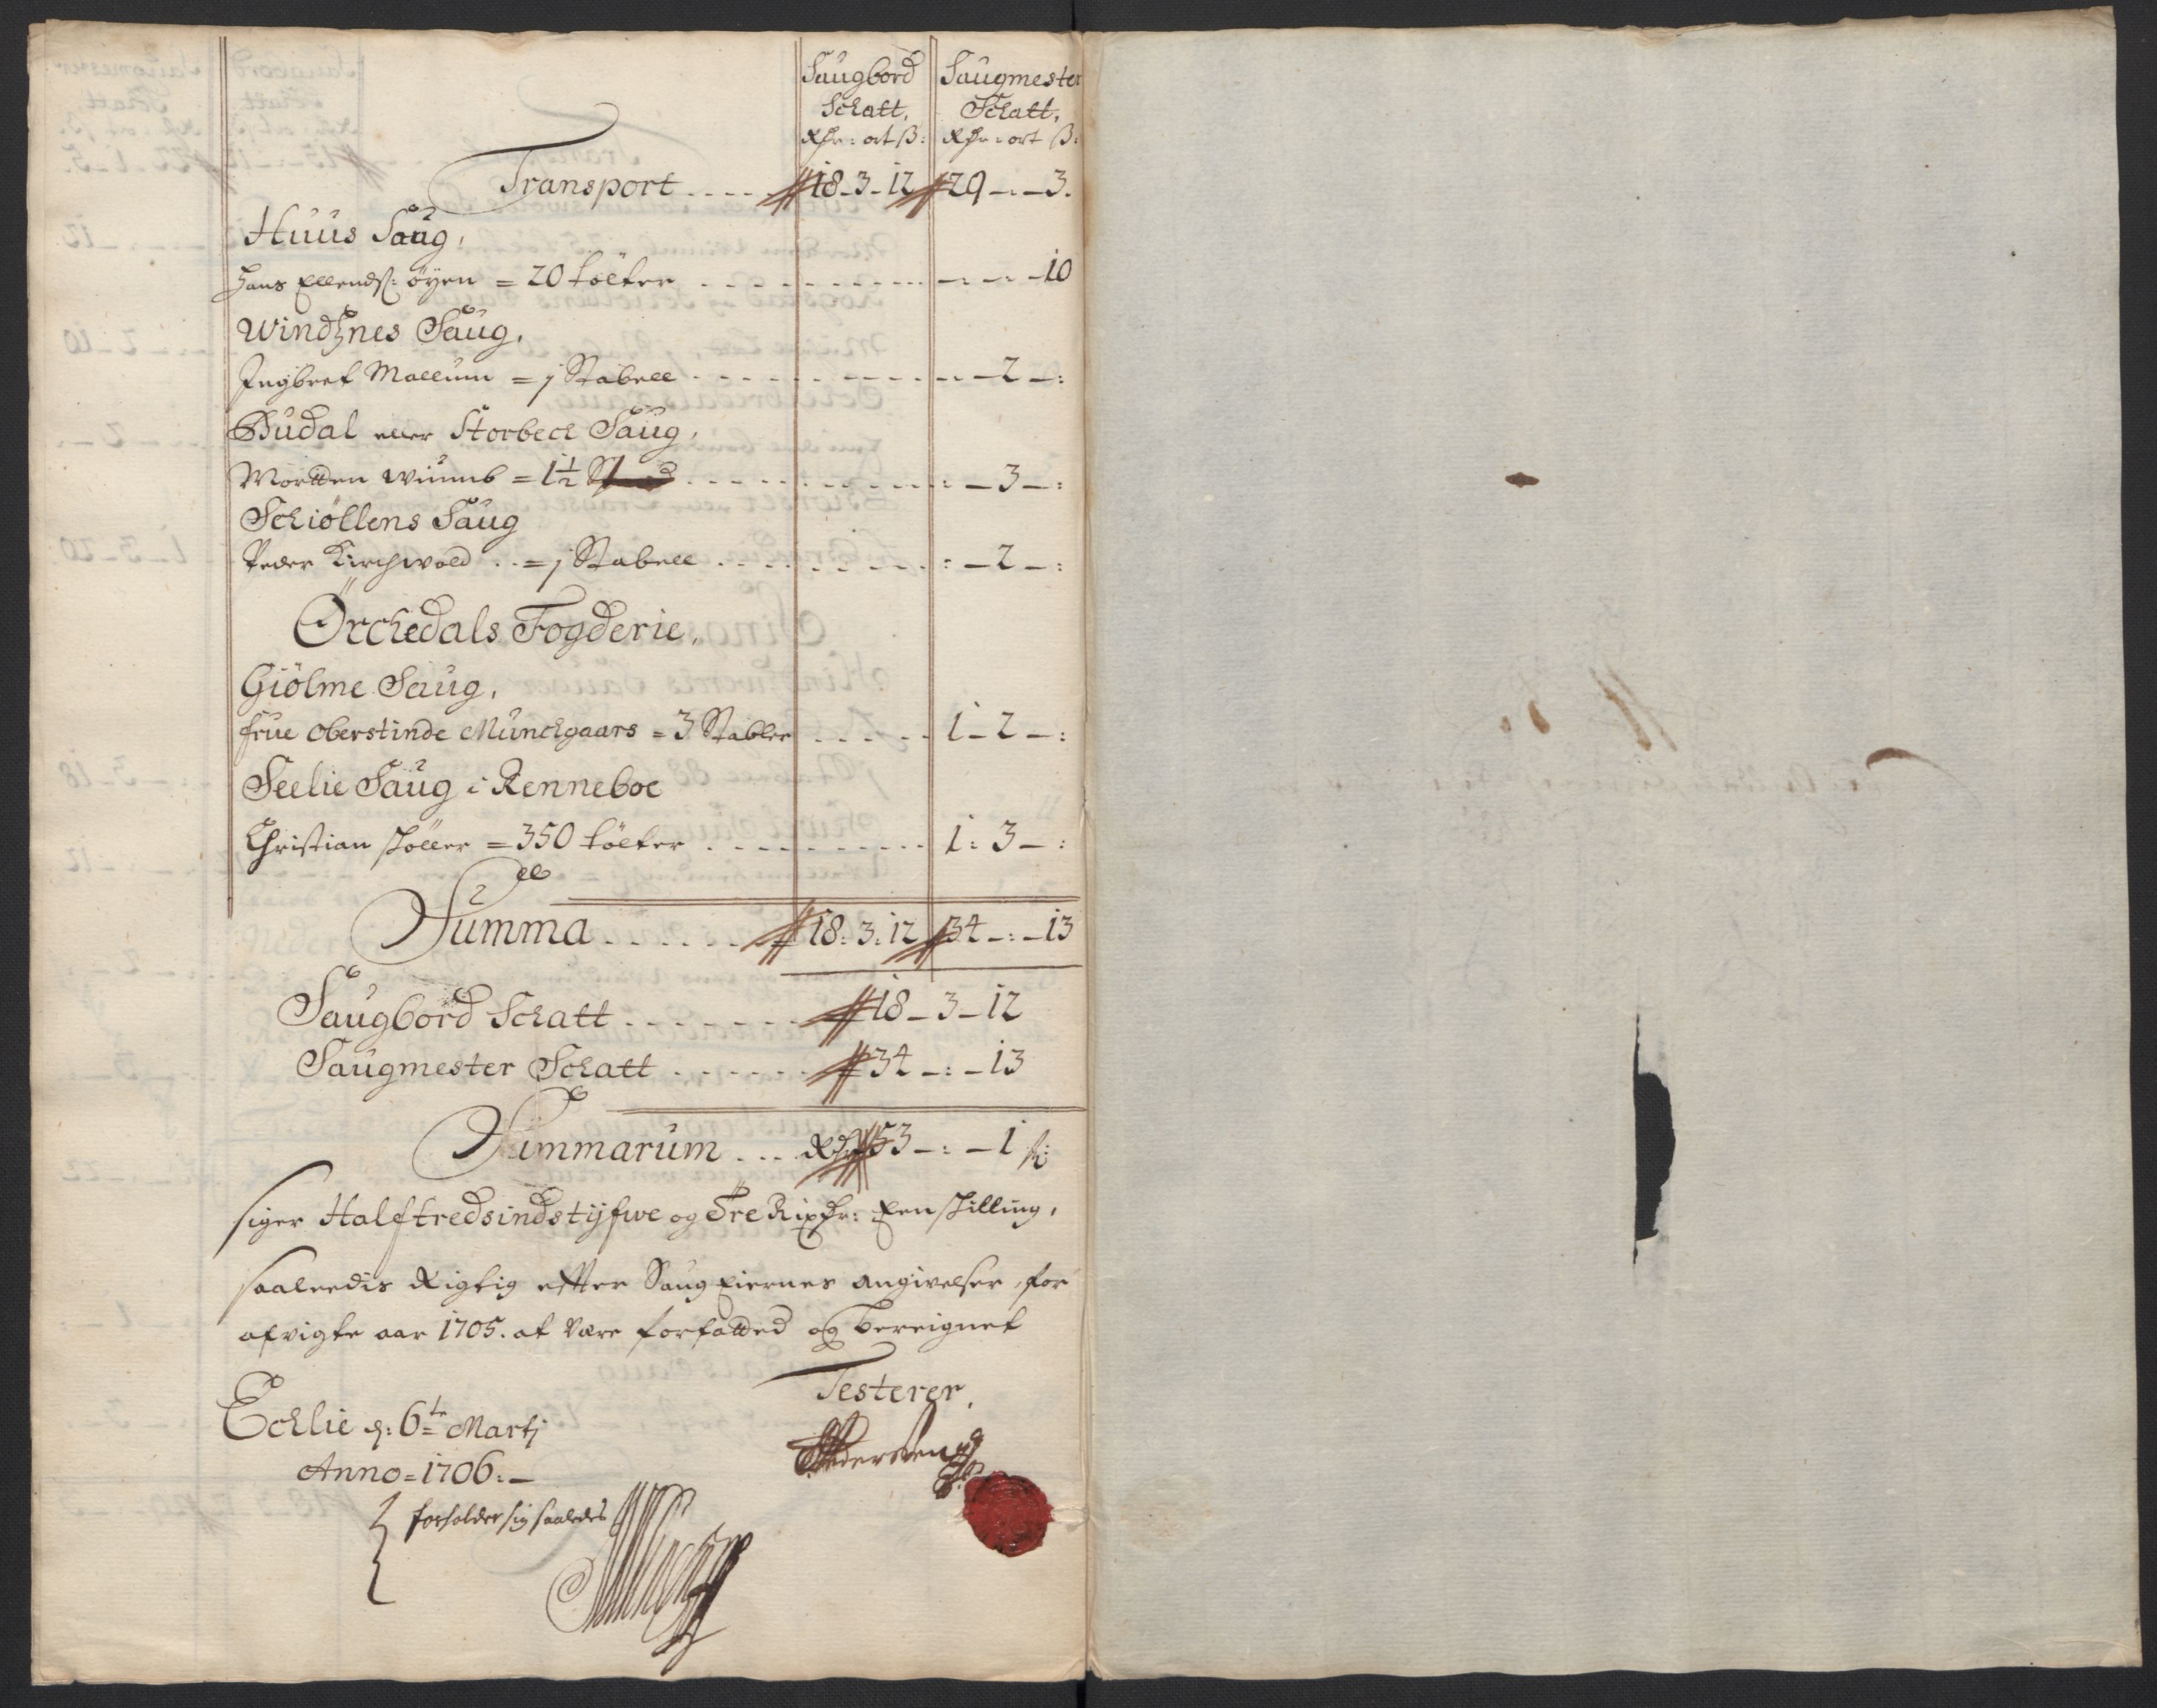 Saugbord Saugmester
Schatt, Schatt,
Rdr: ort ß: Rdr: ort ß:
Transport - - - - 18 - 3 - 12 29 - : - 3.
Huus Saug,
Hans Ellends: öÿen = 20 tölter - - - - - : - : - 10
Windsnes Saug,
Ingbret Mollum = j Stabell - - - - - - 2 - :
Budal eller Storbeck Saug,
Mortten Wiumb = 1½ - - - - : - 3 - :
Schiöllens Saug
Peder Kirchwold . . = j Stabell . . . . : - 2 - :
Örckedals Fogderie,
Giölme Saug,
Frue Oberstinde Munchgaars = 3 Stabler . . . . 1 - 2 - :
Seelie Saug i Renneboe
Christian Schöller = 350 tölter . . . . . 1 : 3 - :
Summa . . . . . . 18 : 3 : 12 34 - : - 13
Saugbord Schatt . - - - - - - 18 - 3 - 12
Saugmester Schatt - - - - - - 34 - : - 13
Summarum . . . Rdr 53 - : - 1 ß:
siger Halftredsindstÿfwe og Tre Rixdr: Een skilling,
saaledis Rigtig efter Saug Eiernes angivelser, for
afvigte aar 1705. at være forfatted og bereignet
Testerer,
Ecklie d: 6te Martj
Anno = 1706 : -
forholder sig saaledes